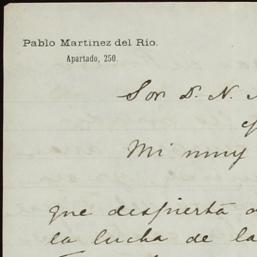 Pablo Martinez del Rio.
Apartado, 250.
Sor. D. N.
Mi muy
que despierta
la lucha de la